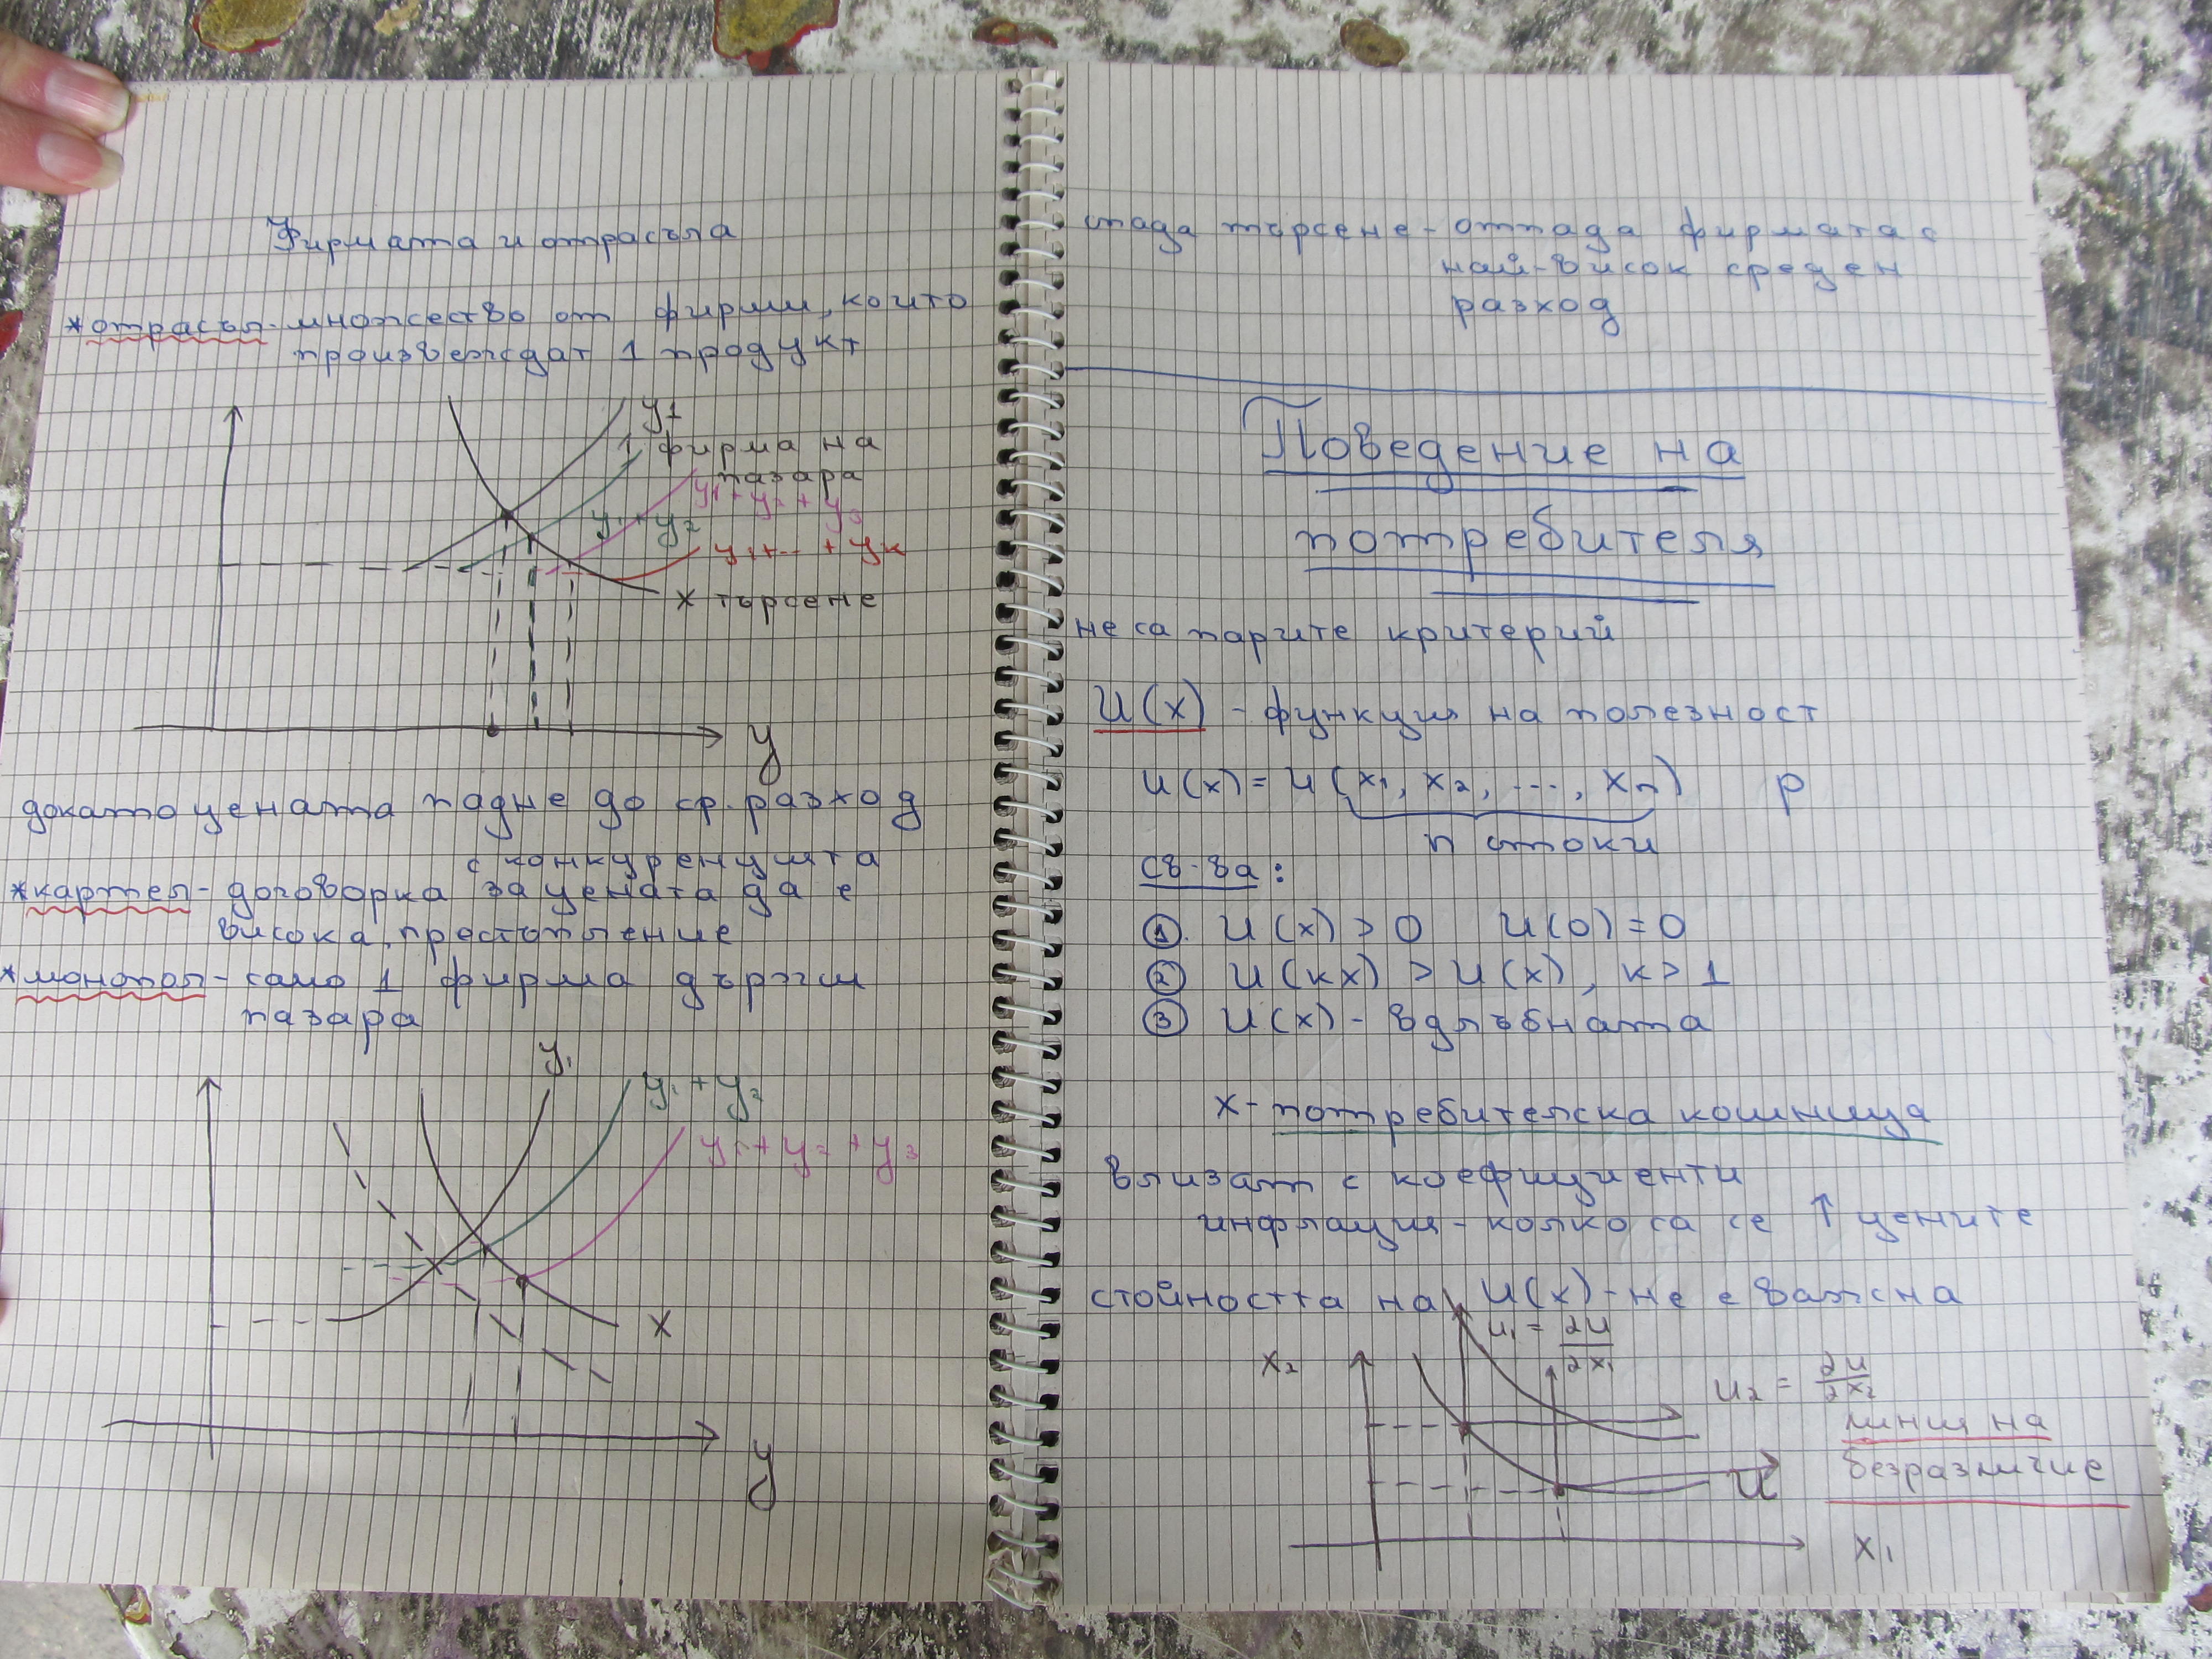 Фирмата и отрасъла
*отрасъл - множество от фирми, които
произвеждат 1 продукт
y1
1 фирма на
пазара
y1 + y2 + y3
y1 + y2
y1+ ... + yk
x търсене
y
докато цената падне до ср. разход
с конкуренцията
*картел - договорка за цената да е
висока, престъпление
*монопол - само 1 фирма държи
пазара
y1
y1 + y2
y1 + y2 + y3
x
y
спада търсене - отпада фирмата с
най-висок среден
разход
Поведение на
потребителя
не са парите критерий
U(x) - функция на полезност
u(x) = u(x1, x2, ..., xn) p
n стоки
св-ва:
① U(x) > 0 U(0) = 0
② U(kx) > U(x), k > 1
③ U(x) - вдлъбната
x - потребителска кошница
влизат с коефициенти
инфлация - колко са се ↑ цените
стойността на U(x) - не е важна
u1 = ∂u/∂x1
x2
u2 = ∂u/∂x2
линия на
безразличие
u
x1